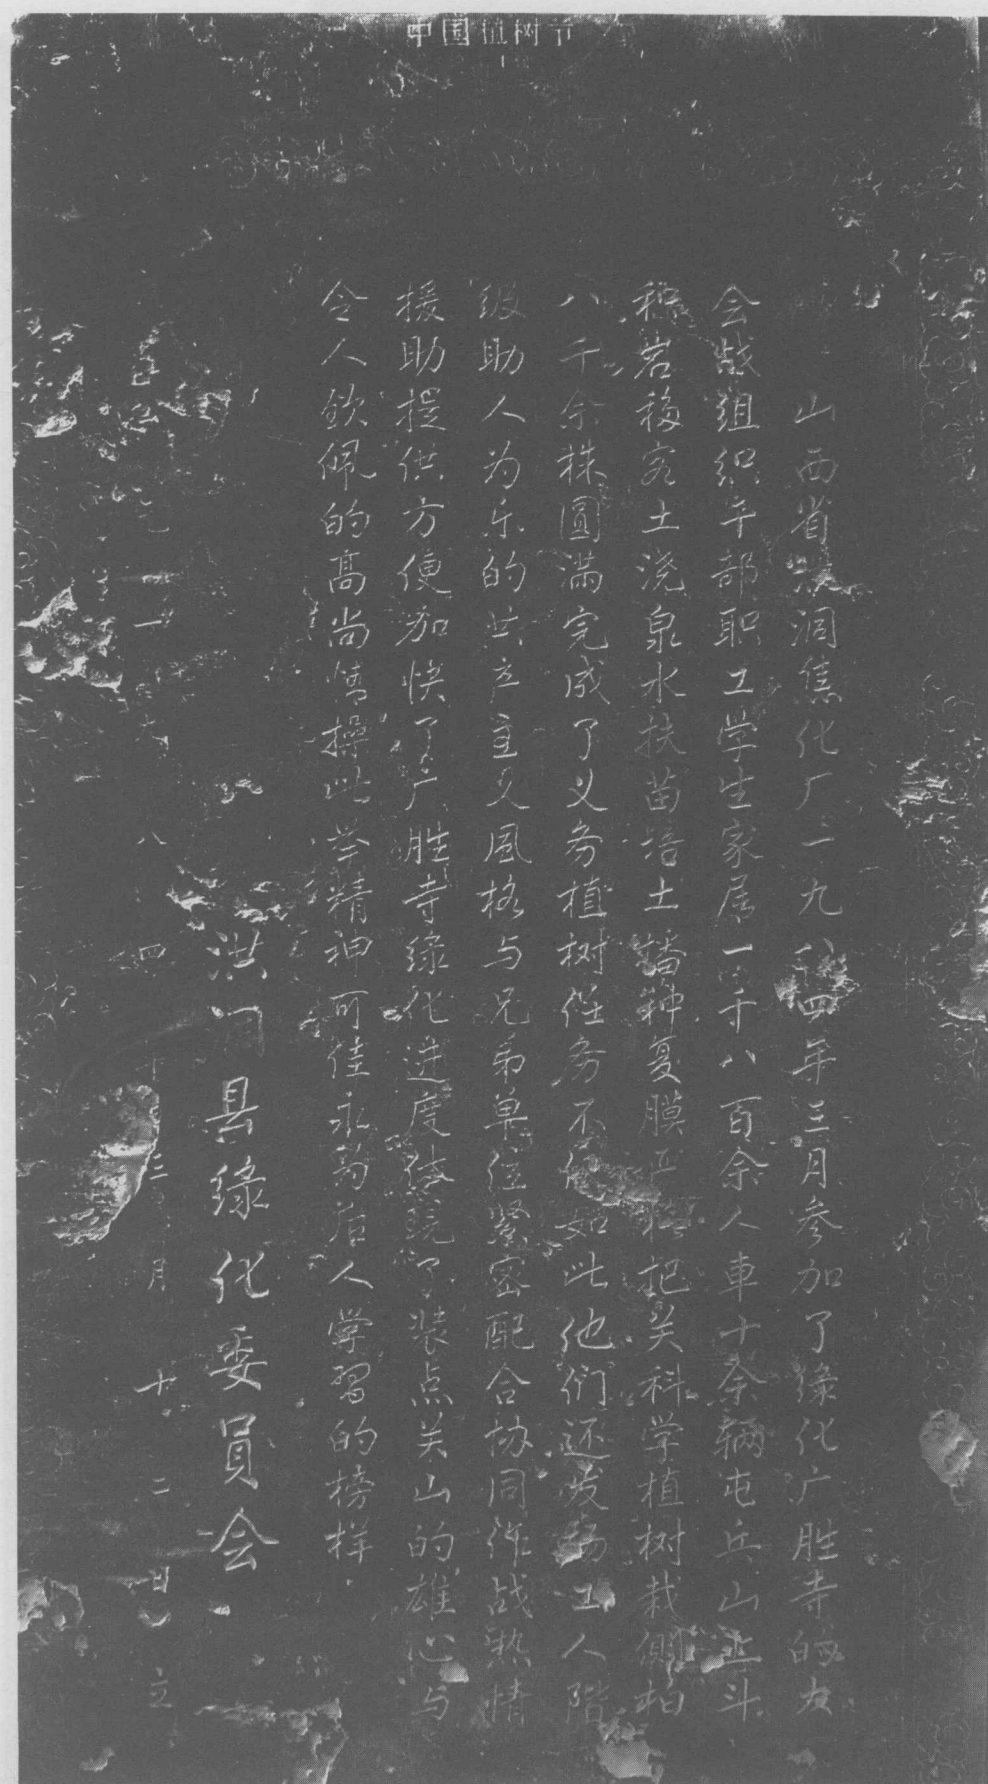 中国植树节
山西省洪洞焦化厂一九八四年三月参加了绿化广胜寺的大
会战组织干部职工学生家属一千八百余人車十余辆屯兵山上斗
积岩移客土浇泉水扶苗培土播种复膜把关科学植树栽側柏
八千余株圆满完成了义务植树任务不仅如此他们还发扬工人階
级助人为乐的共产主义風格与兄弟单位紧密配合协同作战热情
援助提供方便加快了广胜寺绿化进度体現了装点关山的雄心与
令人欽佩的高尚情操此举精神可佳永为后人学習的榜样
洪洞县绿化委員会
一九八四 三月十二日立